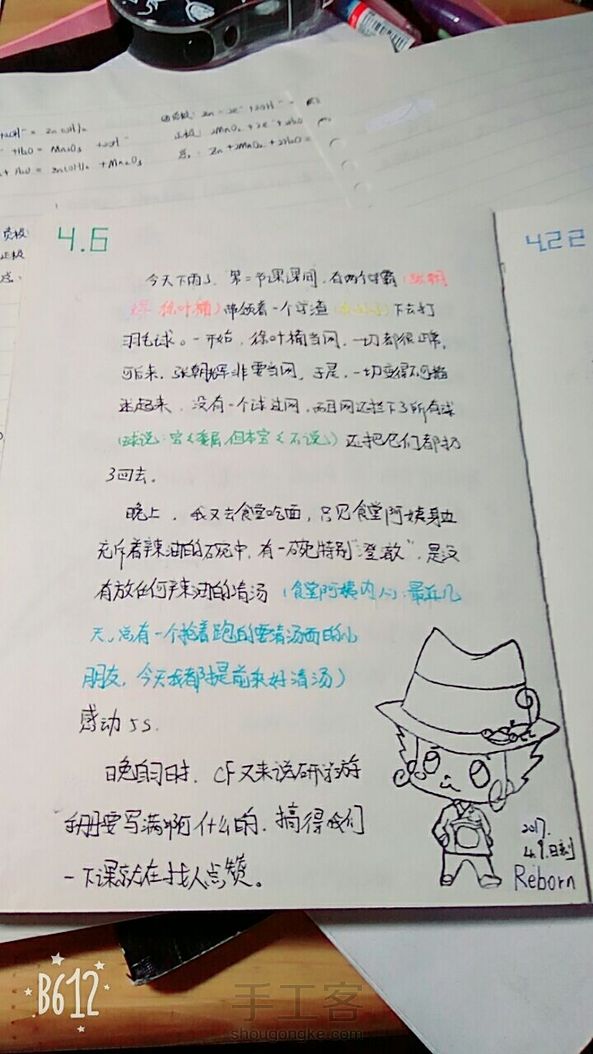 负极：Zn - 2e⁻ + 2OH⁻
正极：2MnO₂ + 2e⁻ + 2H₂O
总：Zn + 2MnO₂ + 2H₂O =
负极
正极
总
4.6
4.22
今天下雨了，第二节课课间，有两个学霸（张朝
辉 徐叶楠）带领着一个学渣下去打
羽毛球。一开始，徐叶楠当网，一切都很正常，
可后来，张朝辉非要当网，于是，一切变得不可描
述起来，没有一个球过网，而且网还拦下了所有球
（球说：宝〈委屈 但本宝〈不说）还把它们都扔
了回去。
晚上，我又去食堂吃面，只见食堂阿姨身边
充斥着辣油的碗中，有一碗特别“澄澈”，是没
有放任何辣油的清汤（食堂阿姨内心：最近几
天，总有一个抢着跑的要清汤面的小
朋友，今天我都提前来好清汤）
感动5s.
晚自习时，CF又来说研学游
手册要写满啊什么的，搞得我们
一下课就在找人点赞。
2017.
4.9.日刻
Reborn
B612
手工客
shougongke.com